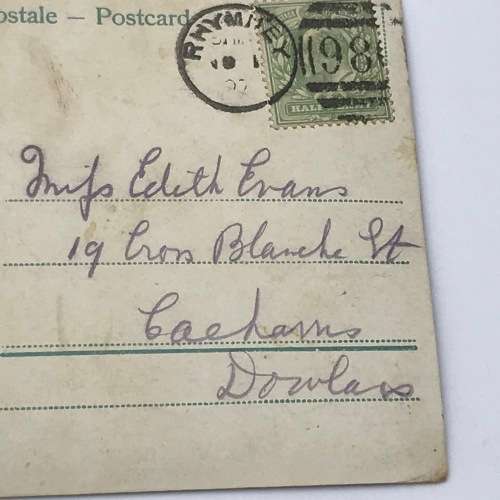 ostale – Postcard
RHYMNEY
198
HALF
Miss Edith Evans
19 Cross Blanche St
Caeharris
Dowlais